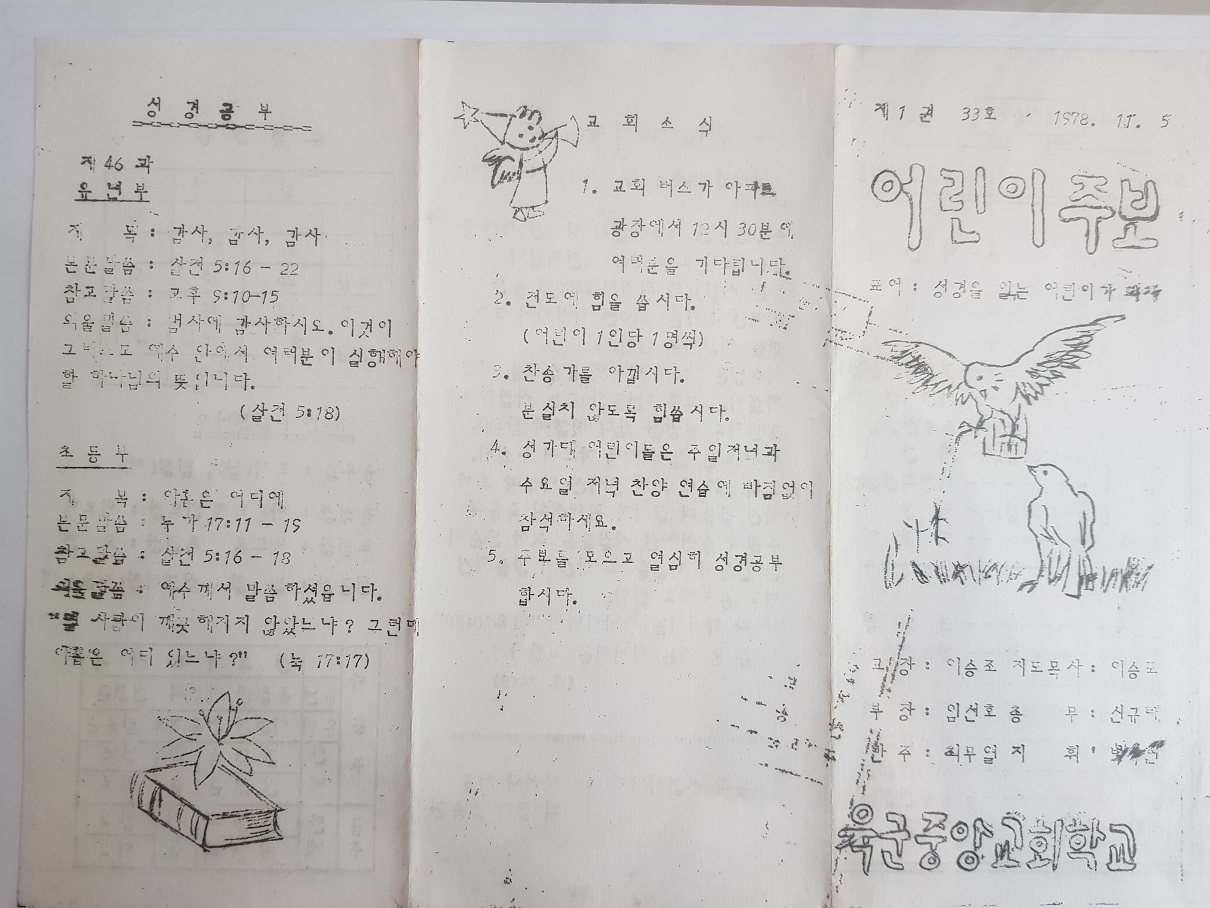 성 경 공 부
제 46 과
유 년 부
제 목 : 감사, 감사, 감사
본문말씀 : 살전 5:16 - 22
참고말씀 : 고후 9:10-15
외울말씀 : 범사에 감사하시오. 이것이
그리스도 예수 안에서 여러분이 실행해야
할 하나님의 뜻입니다.
(살전 5:18)
초 등 부
제 목 : 아홉은 어디에
본문말씀 : 누가 17:11 - 19
참고말씀 : 살전 5:16 - 18
외울말씀 : 예수께서 말씀하셨읍니다.
사람이 깨끗해지지 않았느냐? 그런데
아홉은 어디 있느냐?" (눅 17:17)
교 회 소 식
1. 교회 버스가 아파트
광장에서 12시 30분에
여러분을 기다립니다.
2. 전도에 힘을 씁시다.
(어린이 1인당 1명씩)
3. 찬송가를 아낍시다.
분실치 않도록 힘씁시다.
4. 성가대 어린이들은 주일저녁과
수요일 저녁 찬양 연습에 빠짐없이
참석하세요.
5. 주보를 모으고 열심히 성경공부
합시다.
제 1 권 33호 1978. 11. 5
어린이 주보
표어 : 성경을 읽는 어린이가
교 장 : 이승조 지도목사 : 이승조
부 장 : 임선호 총 무 : 신규
반 주 : 최무열 지 휘 :
육군중앙교회학교